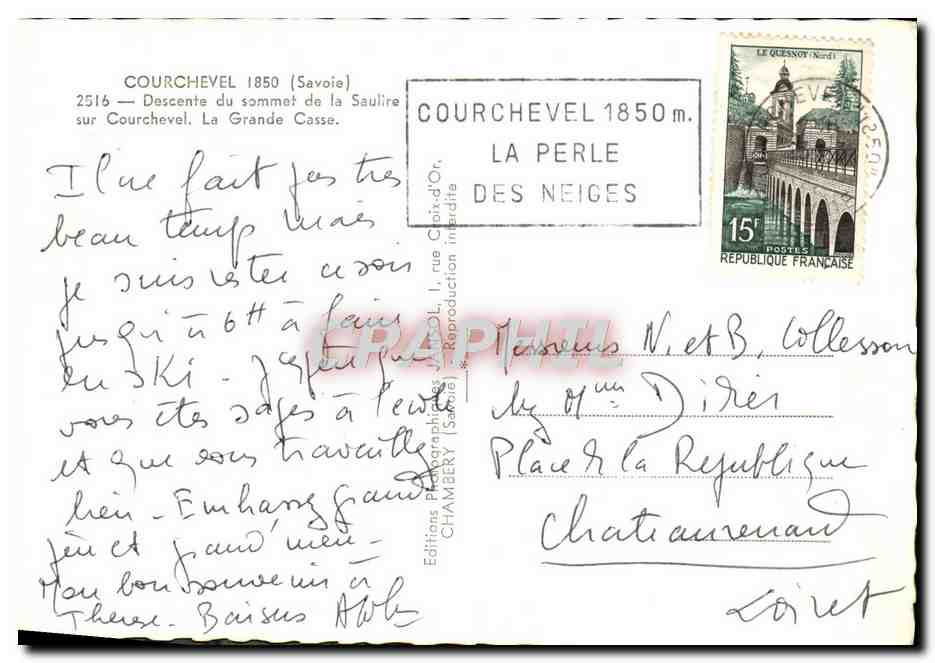 COURCHEVEL 1850 (Savoie)
2516 — Descente du sommet de la Saulire
sur Courchevel. La Grande Casse.
COURCHEVEL 1850 m.
LA PERLE
DES NEIGES
LE QUESNOY (Nord)
15F
POSTES
REPUBLIQUE FRANÇAISE
Il ne fait pas très
beau temps mais
je suis restée ce soir
jusqu'à 6H à faire
du ski - J'espère que
vous êtes sages à l'école
et que vous travaillez
bien - Embrassez grand
père et grand'mère -
Mon bon souvenir à
Thérèse - Baisers
Editions Photographiques JANSOL, 1, rue Croix-d'Or,
CHAMBERY (Savoie) - Reproduction interdite
CPAPHIL
Messieurs N. et B. Collesson
Place de la République
Chateaurenard
Loiret